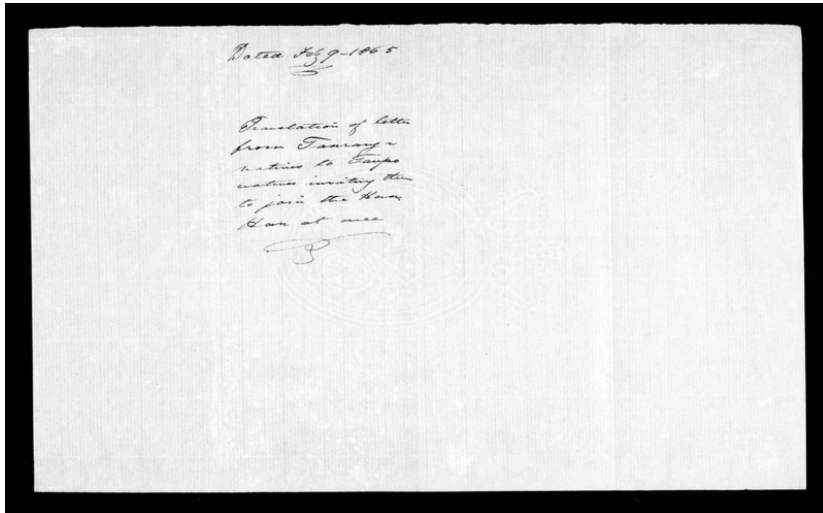 Dated Feby 9-1865
Translation of letter
from Tauranga
natives to Taupo
natives inviting them
to join the Hau
Hau at once